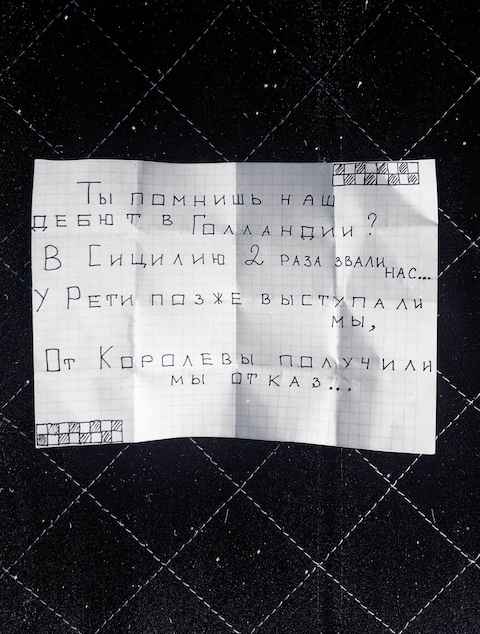 Ты помнишь наш
дебют в Голландии?
В Сицилию 2 раза звали
нас...
У Рети позже выступали
мы,
От Королевы получили
мы отказ...